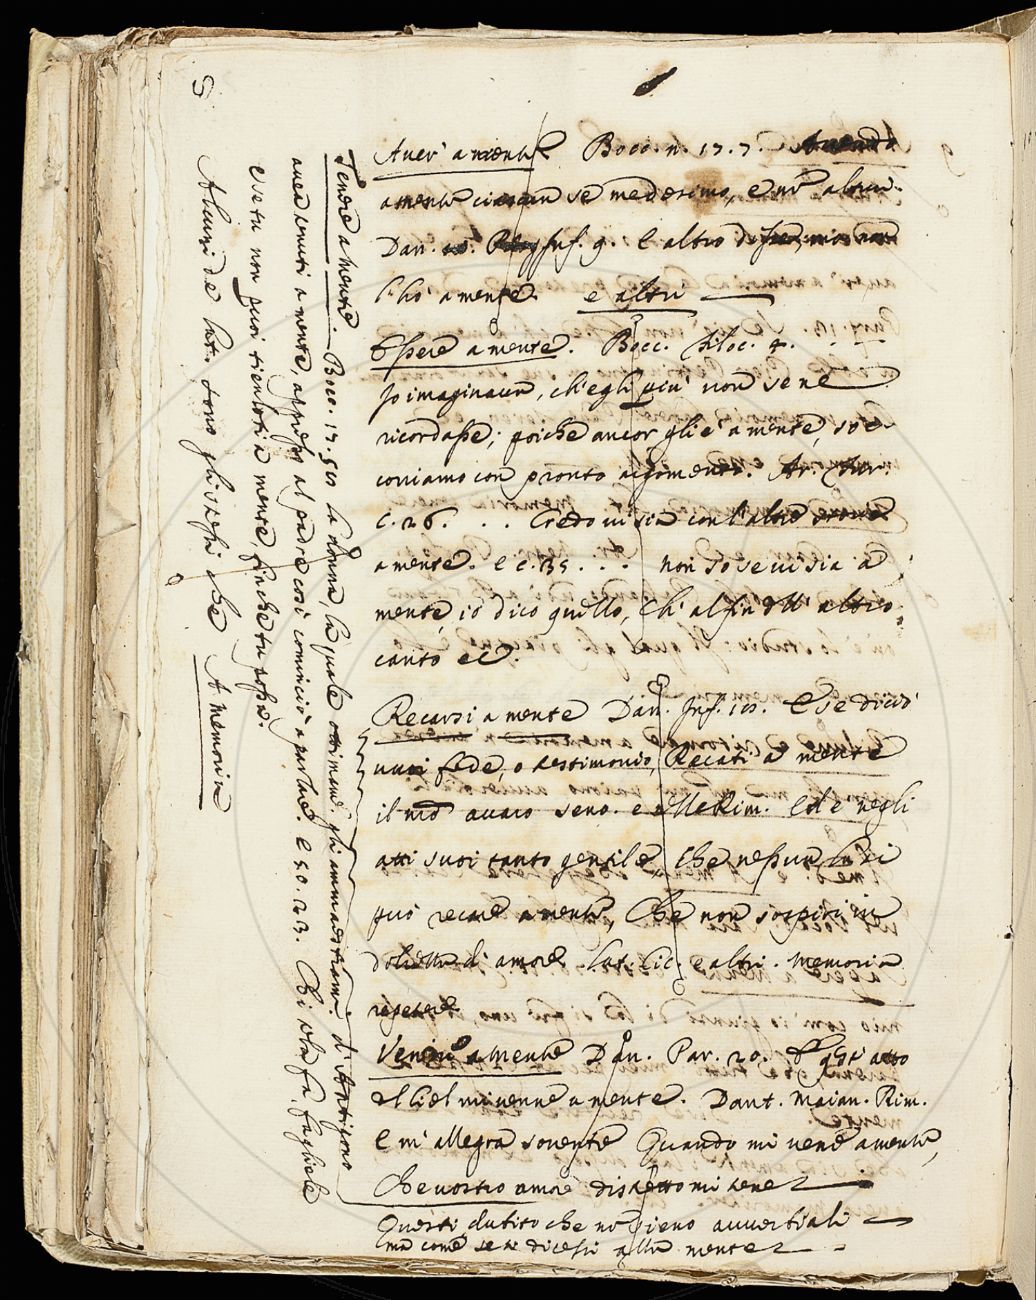 Aver' a mente Bocc. n. 17. 7. Avendo
a mente ciascun se medesimo, e no' alcun.
Dan. Inf. 9. E altro disse, ma non
l'hò a mente. e altri
Essere a mente. Bocc. Filoc. 4.
Io imaginava, ch'egli più non se ne
ricordasse; poiche ancor gli è a mente,
coviamo con pronto argomento. Ar. Fur.
C. 26. . . Credo vi sia con l'altre
a mente. e C. 35 . . . non so se vi sia à
mente, io dico quello, Ch' al fin dell' altro
canto ec.
Recarsi a mente Dan. Inf. E se di ciò
vuoi fede, o testimonio, Recati a mente
il nro avaro seno. e Rim. Ed è negli
atti suoi tanto gentile, Che nessun la si
può recare a mente, Che non sospiri in
dolcezza di amore. Lat. Cic. e altri. Memoria
repetere.
Venire a mente Dan. Par. 20. E qsti atto
del Ciel mi venne a mente. Dant. Maian. Rim.
E m' allegra sovente Quando mi vene a mente,
Che vostro amore distretto mi tene
Questi, dubito che no' sieno avverbiali
ma come se si dicessi alla mente
Tenere a mente. Bocc. 17. 50 la donna, la quale ottimame. gli ammaestrame. d'Antigono
avea tenuti a mente, appresso al padre così cominciò a parlare. E 50. 23. Chi te la fa, fagliele
e se tu non puoi tienloti a mente, finche tu possa.
Alcuni de Lat. sono gli stessi che A memoria